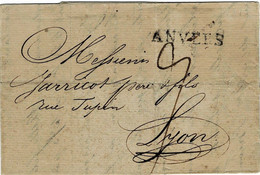 ANVERS
Messieurs
Jarricot pere & fils
rue Tupin
Lyon